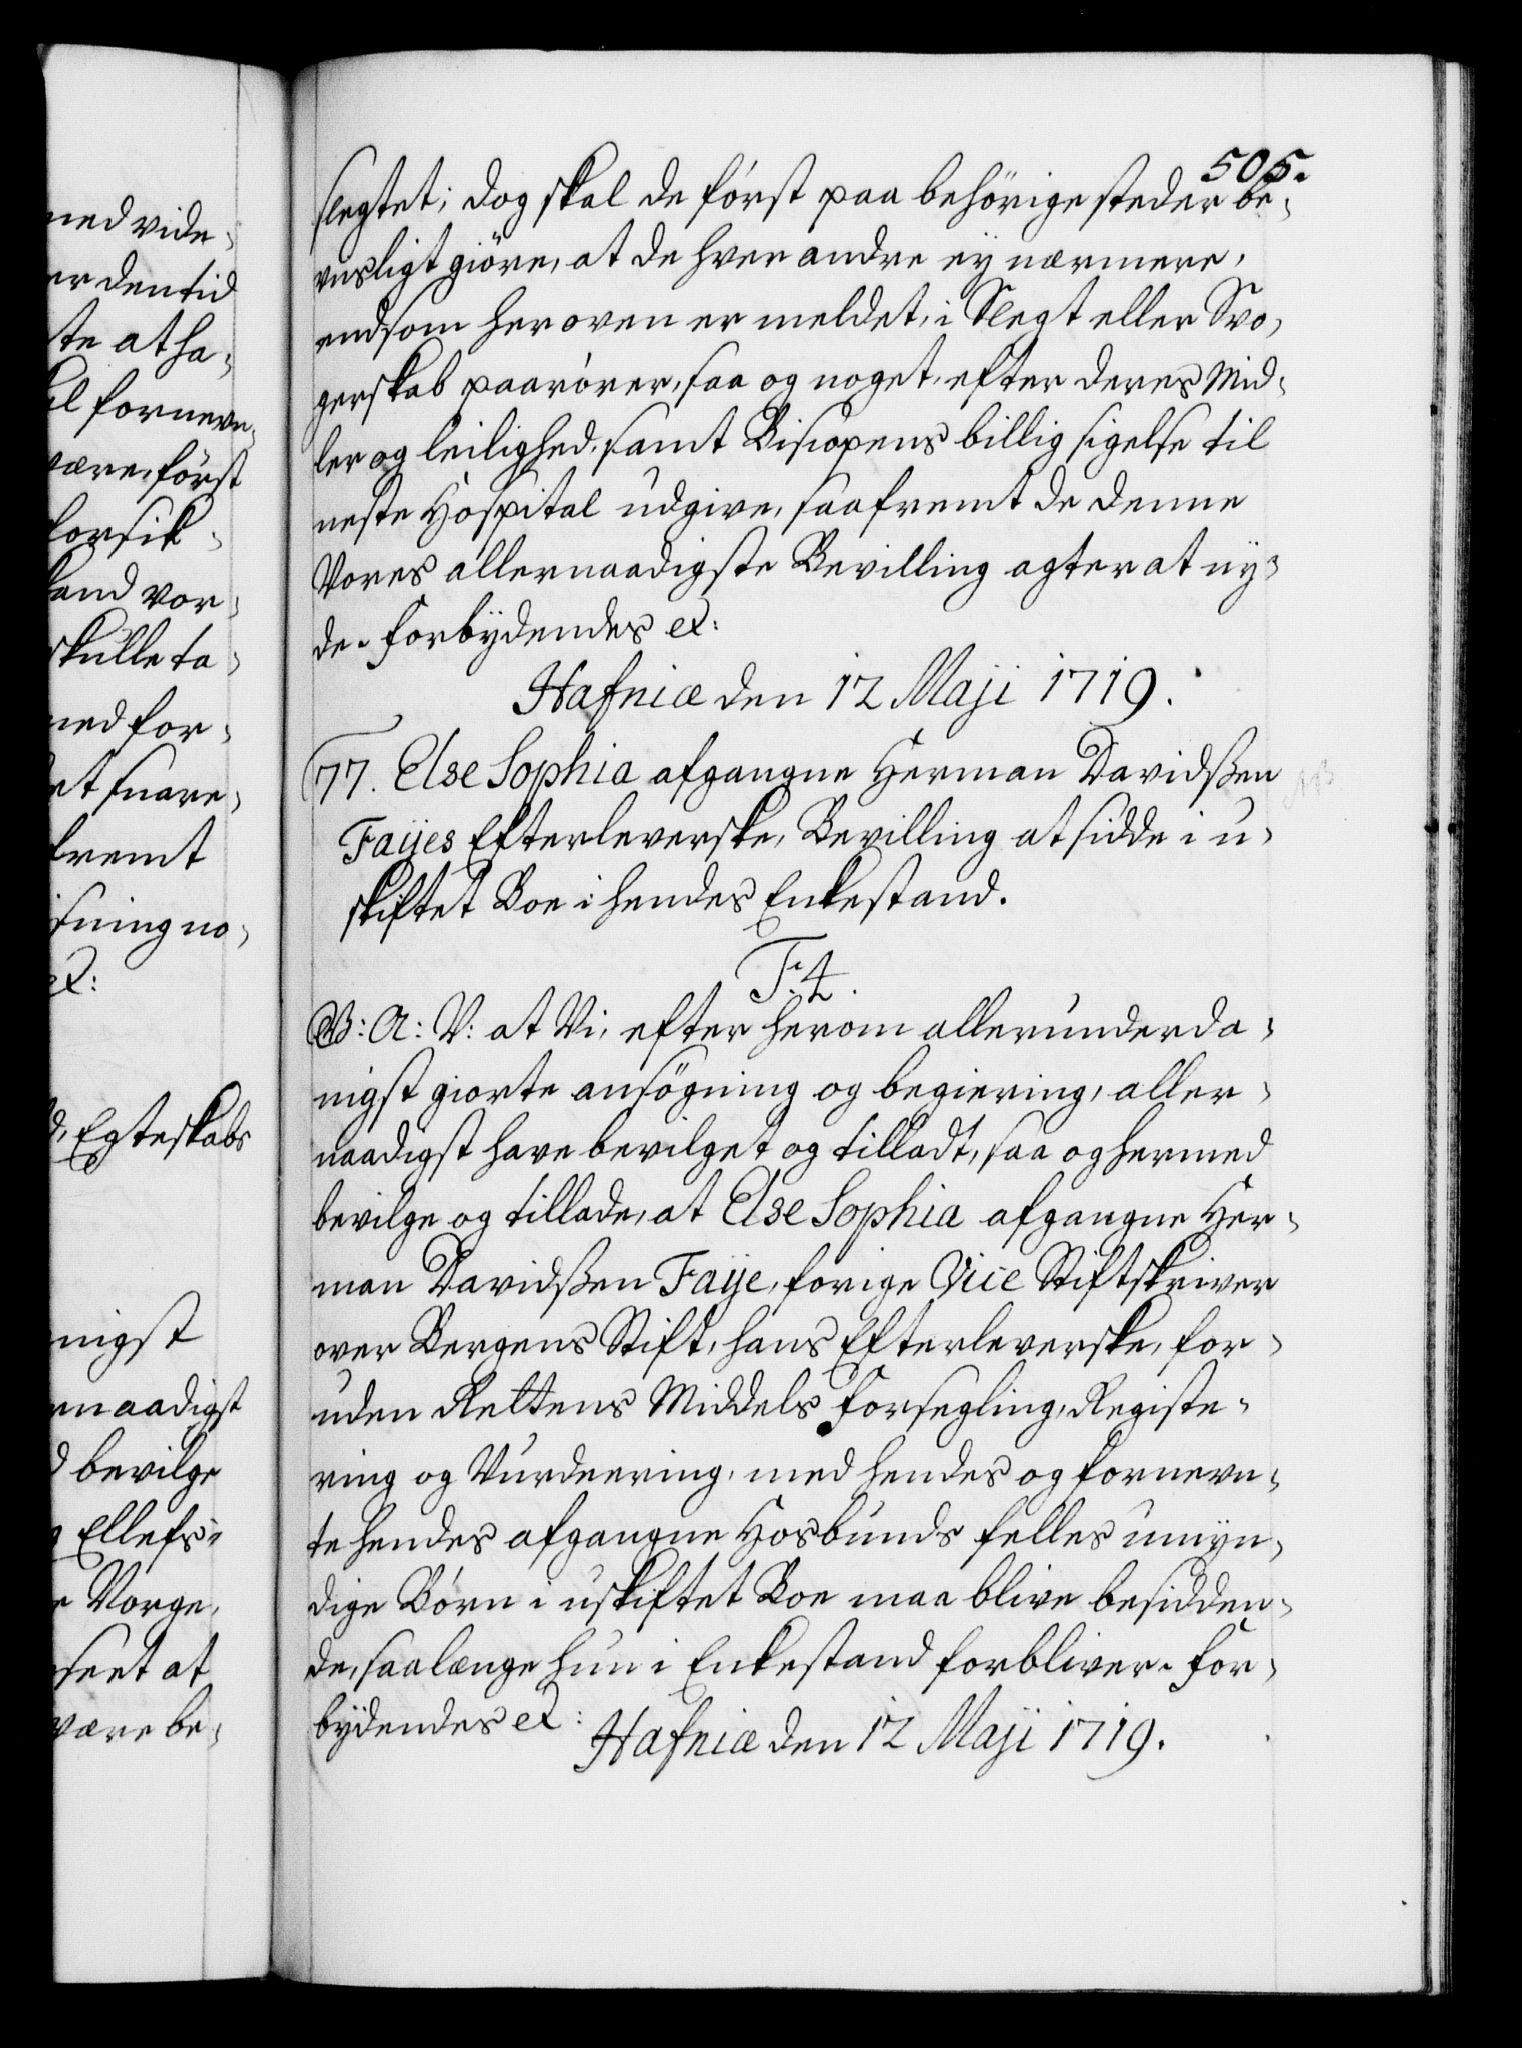 ned vide-
er den tid
ste at ha-
el fornevn-
være, først
forsik-
land vor-
skulle ta-
med for-
et svare,
fremt
isning no-
ex:
d, Egteskabs
nigst
rnaadigst
d bevilge
g Ellefs-
e Norge,
seet at
være be-
505.
slegtet; dog skal de først paa behörige steder be-
viisligt giöre, at de hver andre ey nærmere,
end som her oven er meldet, i Slegt eller Svo-
gerskab paarörer, saa og noget, efter deres Mid-
ler og leilighed, samt Biscopens billig sigelse til
neste Hospital udgive, saafremt de denne
Vores allernaadigste Bevilling agter at ny-
de. Forbydendes ex:
Hafniæ den 12 Maji 1719.
77. Else Sophia afgangne Herman Davidßen
Faÿes Efterleverske, Bevilling at sidde i u-
skiftet Boe i hendes Enkestand.
F. 4.
G: A: V: at Vi, efter herom allerunderda-
nigst giorte ansögning og begiering, aller-
naadigst have bevilget og tilladt, saa og hermed
bevilge og tillade, at Else Sophia afgangne Her-
man Davidßen Faÿe, forige Vice Stiftskriver
over Bergens Stift, hans Efterleverske, for-
uden Rettens Middels Forsegling, Registe-
ring og Vurdering, med hendes og fornevn-
te hendes afgangne Hosbunds felles umyn-
dige Börn i uskiftet Boe maa blive besidden-
de, saalænge hun i Enkestand forbliver. For-
bydendes ex:
Hafniæ den 12 Maji 1719.